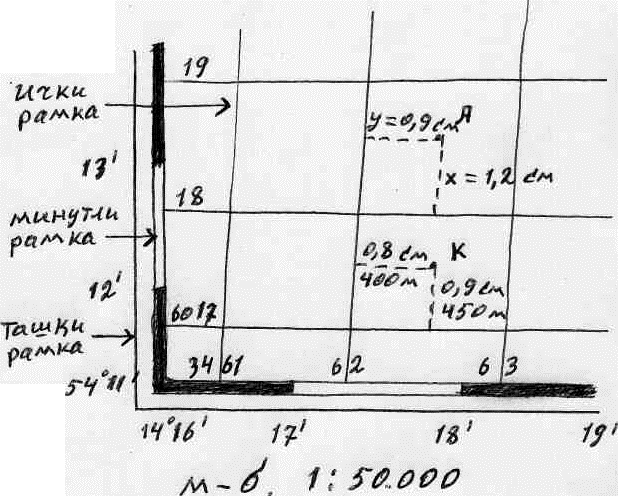 19
ички
рамка
y=0,9 см А
13'
x = 1,2 см
18
минутли
рамка
0,8 см К
400 м
0,9 см
450 м
12'
6017
ташқи
рамка
34 61 62 63
54°11'
14°16' 17' 18' 19'
м-б. 1:50.000